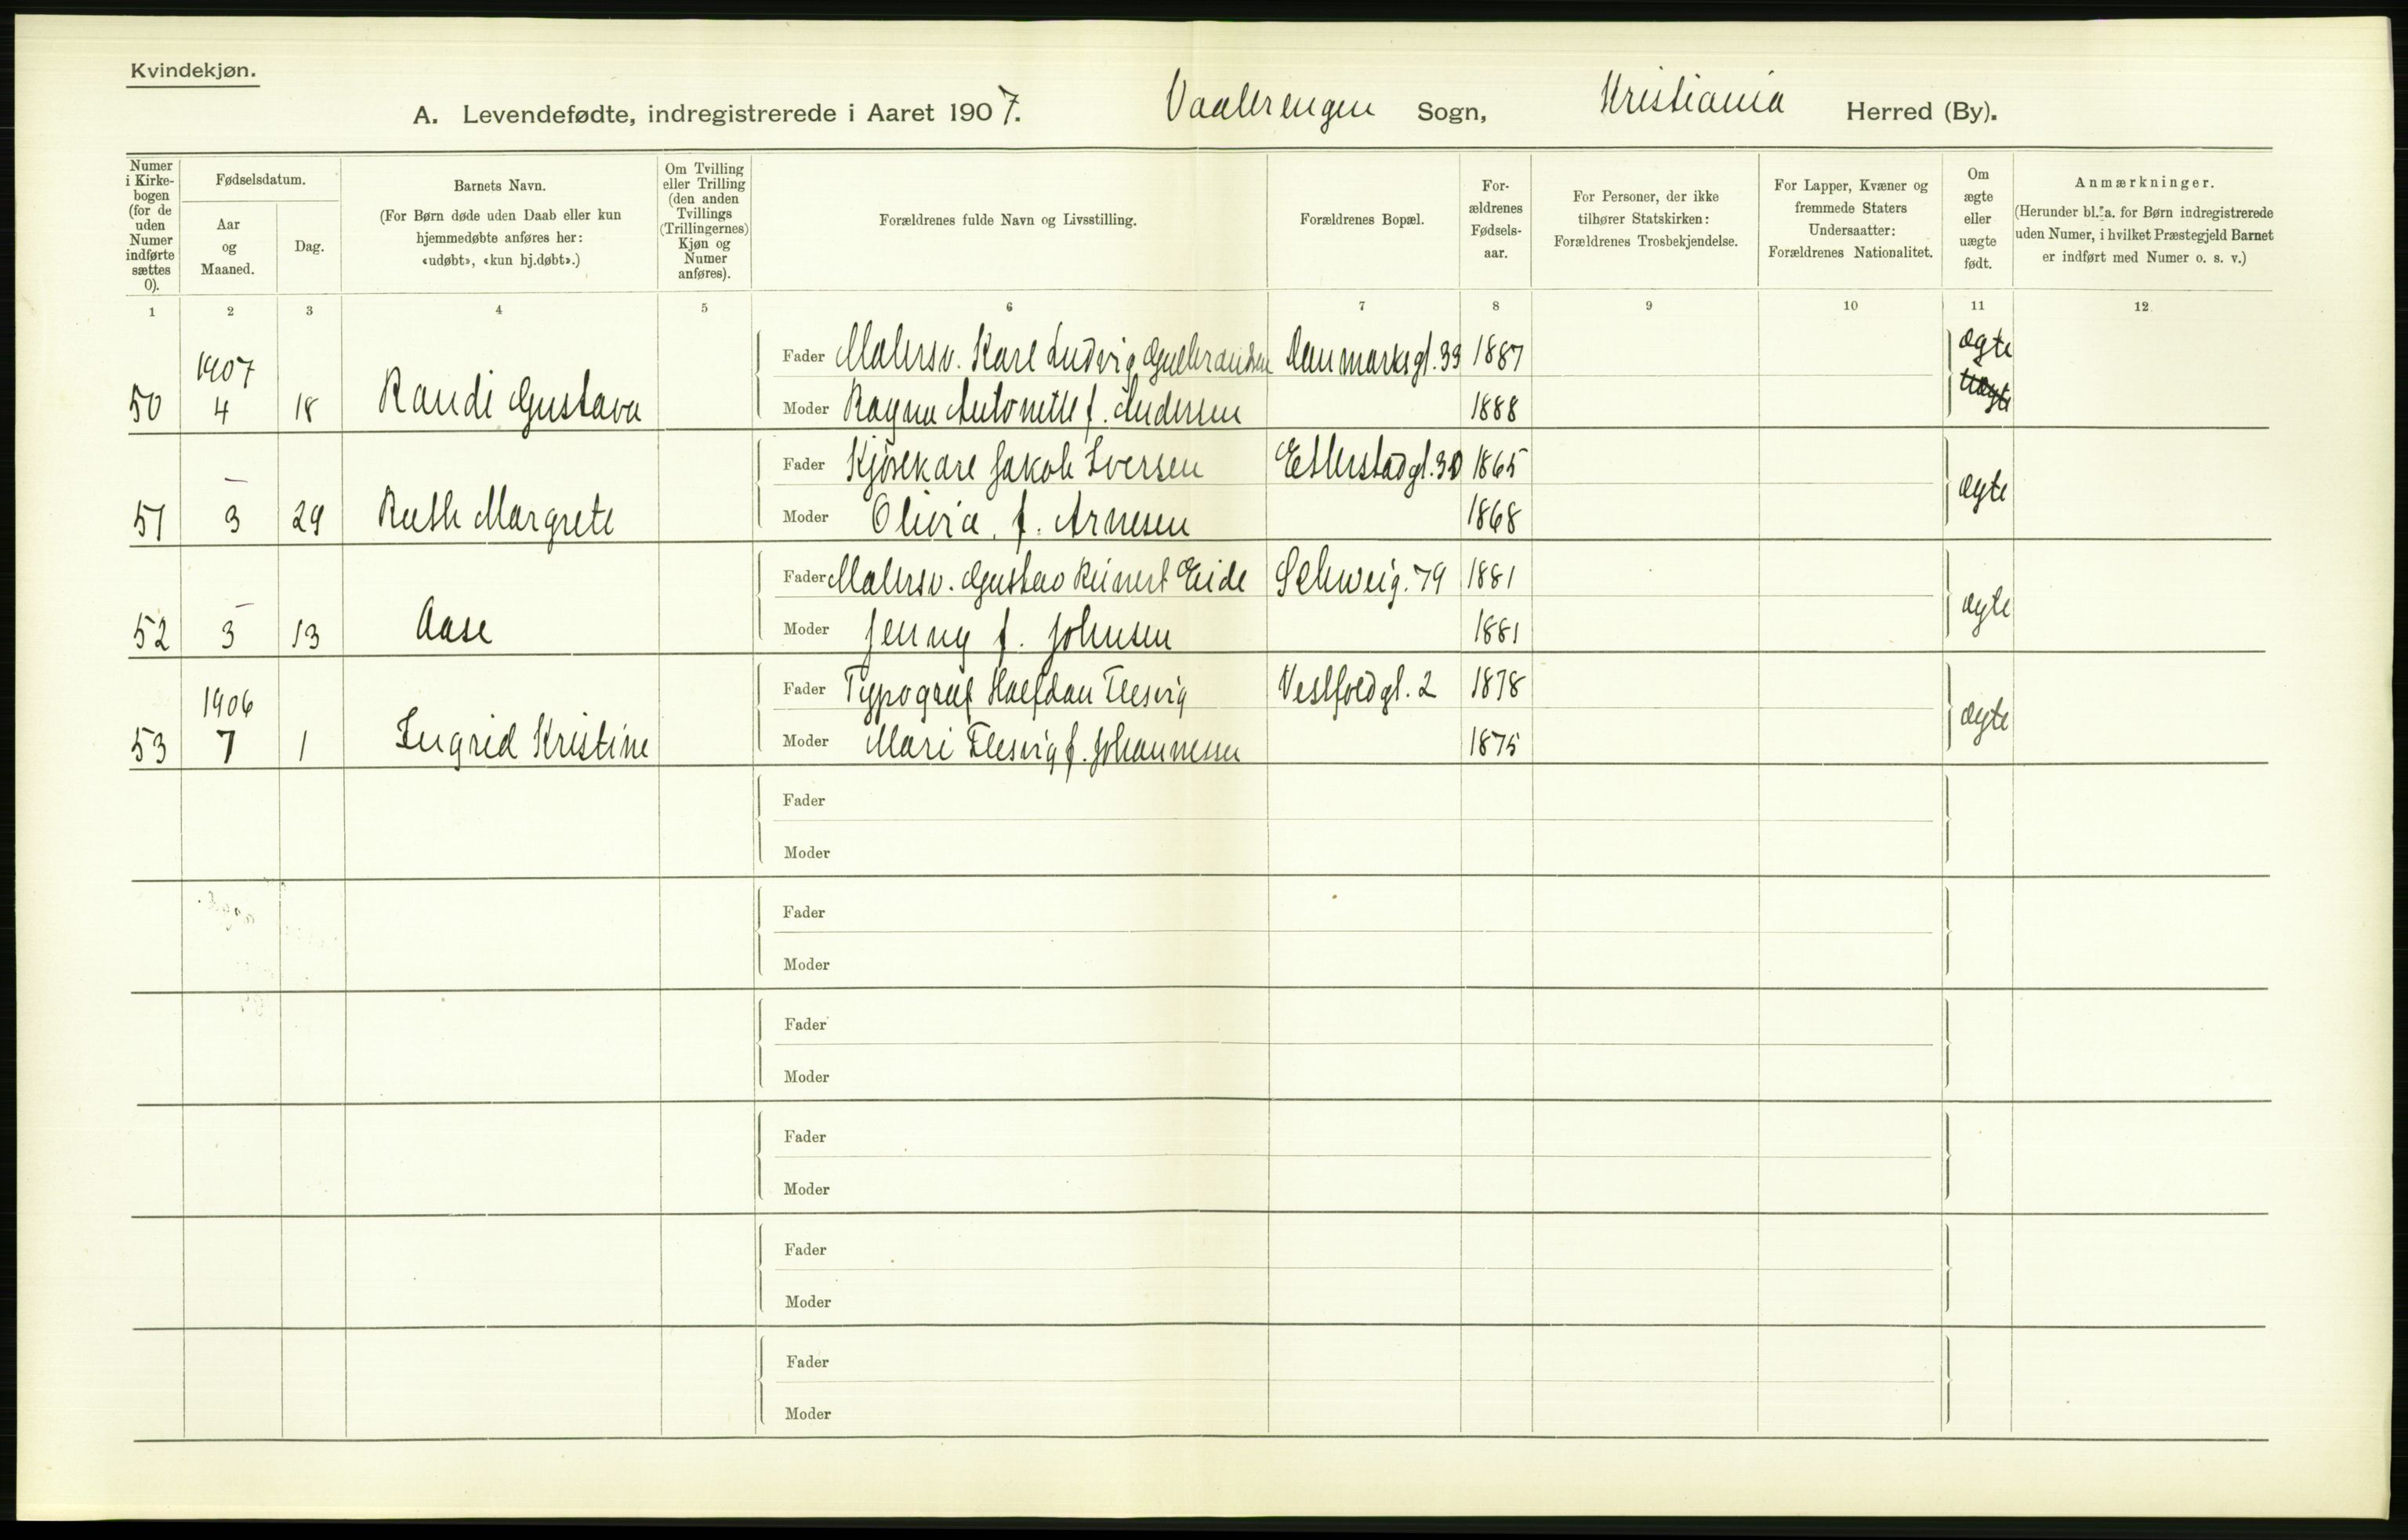 Kvindekjøn.
A. Levendefødte, indregistrerede i Aaret 1907. Vaalerengen Sogn, Kristiania Herred (By).
Numer i Kirkebogen (for de uden Numer indførte sættes 0).
Fødselsdatum.
Aar og Maaned.
Dag.
Barnets Navn.
(For Børn døde uden Daab eller kun hjemmedøbte anføres her: «udøbt», «kun hj.døbt».)
Om Tvilling eller Trilling (den anden Tvillings (Trillingernes) Kjøn og Numer anføres).
Forældrenes fulde Navn og Livsstilling.
Forældrenes Bopæl.
Forældrenes Fødselsaar.
For Personer, der ikke tilhører Statskirken: Forældrenes Trosbekjendelse.
For Lapper, Kvæner og fremmede Staters Undersaatter: Forældrenes Nationalitet.
Om ægte eller uægte født.
Anmærkninger.
(Herunder bl. a. for Børn indregistrerede uden Numer, i hvilket Præstegjeld Barnet er indført med Numer o. s. v.)
1 2 3 4 5 6 7 8 9 10 11 12.
1907 Fader Malersv. Karl Ludvig Gulbrandsen Danmarksgt. 33 1887 ægte
50 4 18 Randi Gustava Moder Ragna Antonette f. Andersen 1888 uægte
— Fader Kjørekarl Jakob Iversen Etterstadgt. 30 1865 ægte
51 3 29 Ruth Margrete Moder Olivia f. Arnesen 1868
— Fader Malersv. Gustav Reinert Eide Schweig. 79 1881 ægte
52 3 13 Aase Moder Jenny f. Johnsen 1881
1906 Fader Typograf Halfdan Flesvig Vestfoldgt. 2 1878 ægte
53 7 1 Ingrid Kristine Moder Mari Flesvig f. Johannessen 1875
Fader
Moder
Fader
Moder
Fader
Moder
Fader
Moder
Fader
Moder
Fader
Moder